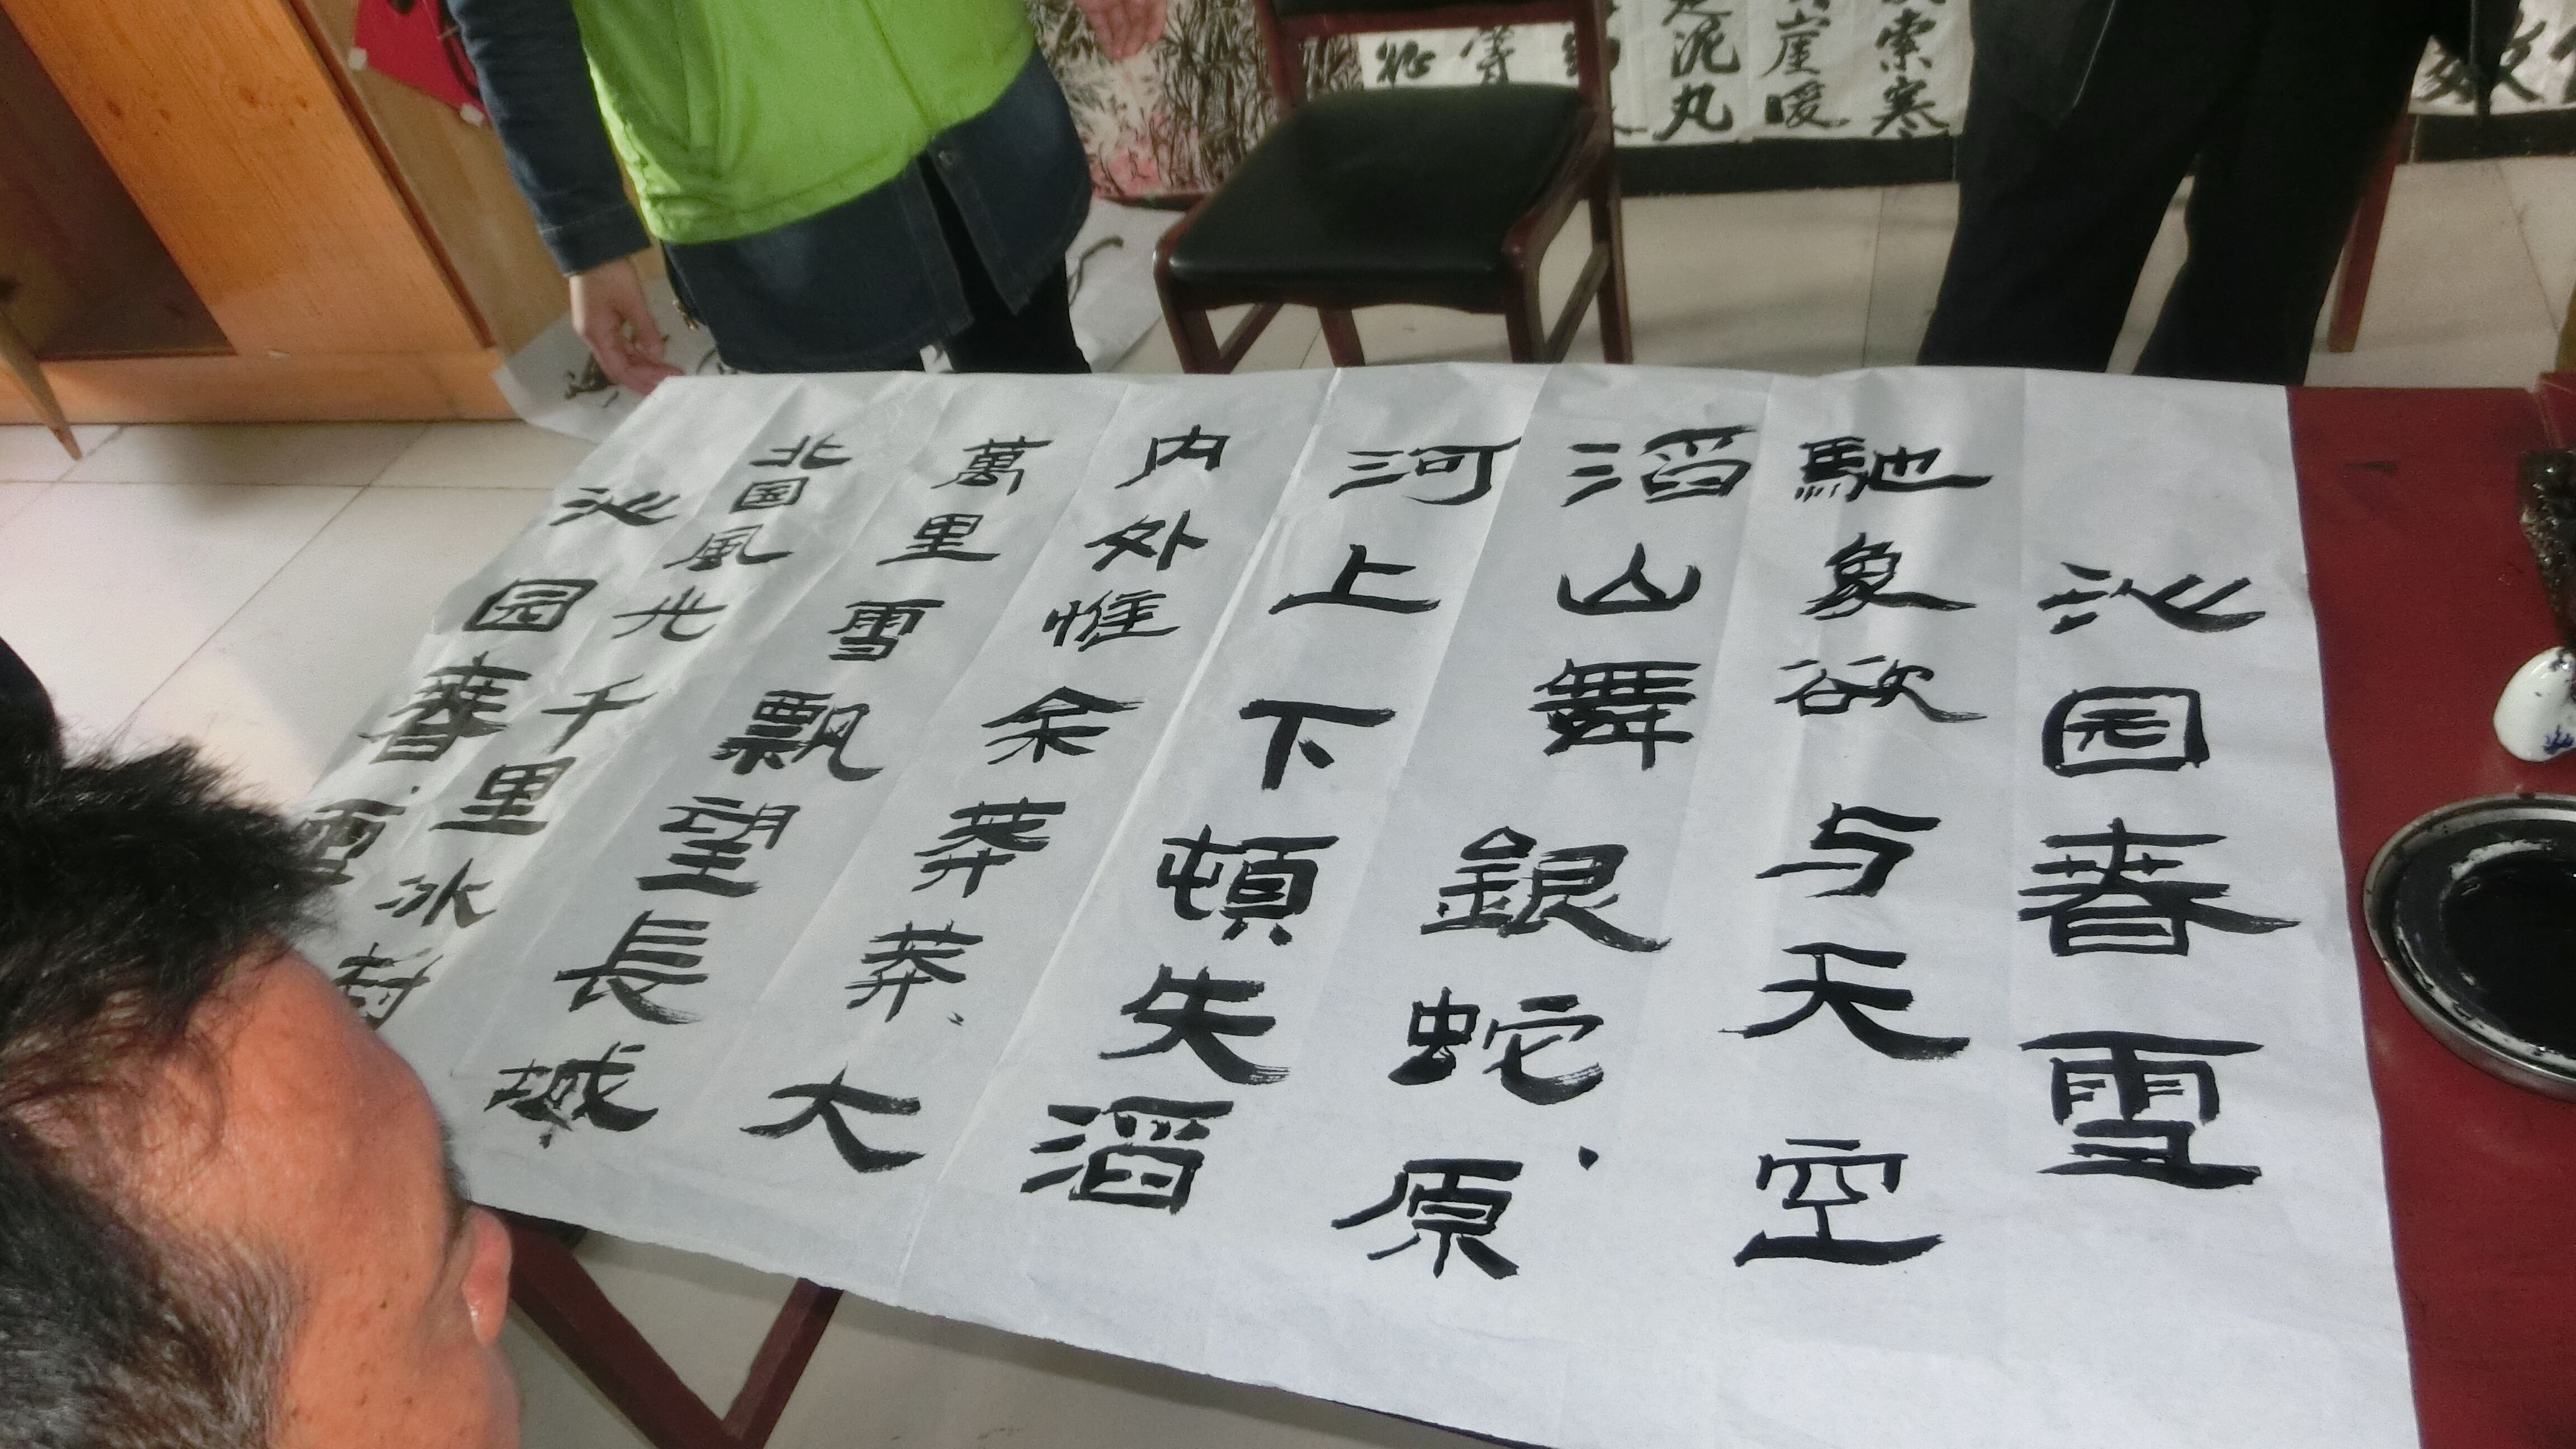 沁园春.雪
北国風光千里冰封
萬里雪飘望長城
内外惟余莽莽、大
河上下頓失滔
滔山舞銀蛇、原
馳象欲与天空
沁园春雪
索寒
崖暖
泥丸
等